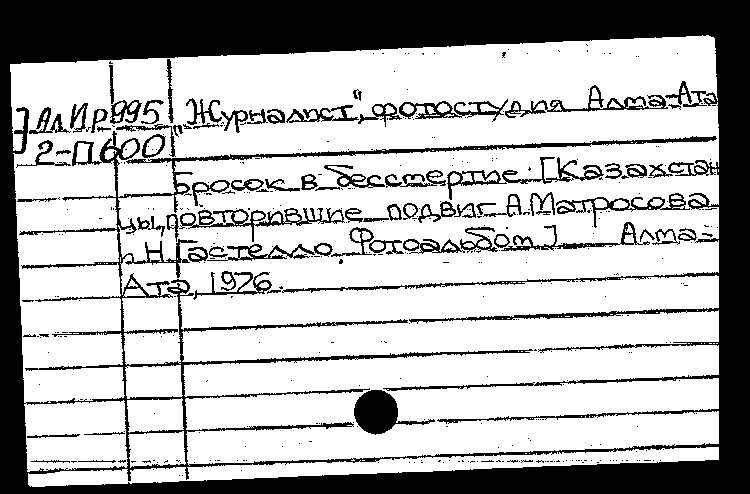 АлИр995 "Журналист", фотостудия Алма-Ата
2-П600
Бросок в бессмертие. [Казахстан
цы, повторившие подвиг А.Матросова
и Н.Гастелло. Фотоальбом] Алма-
Ата, 1976.